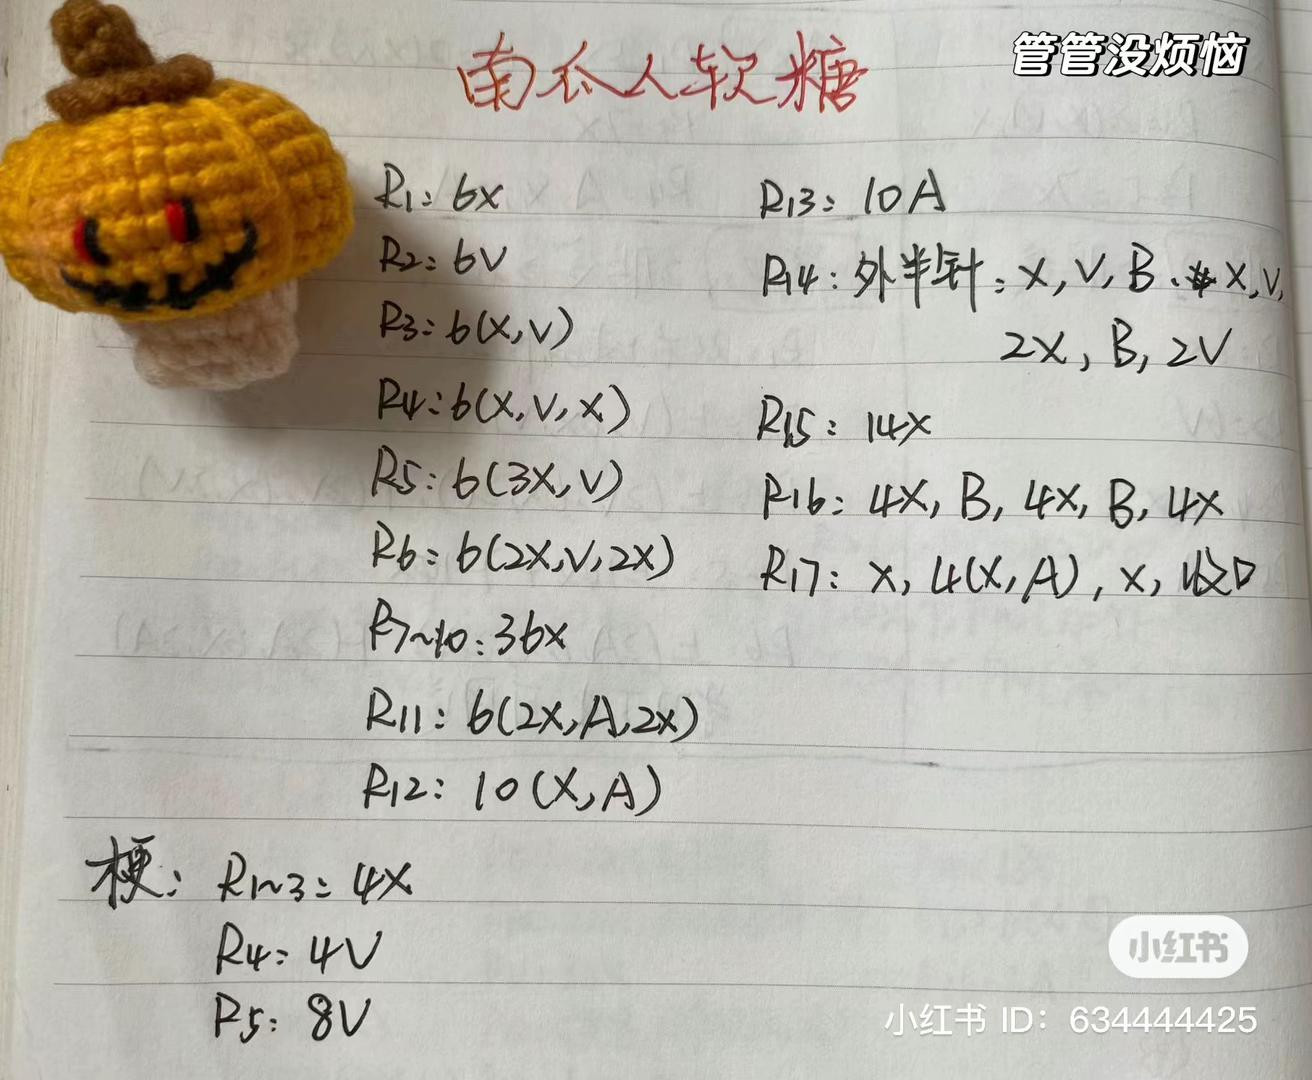 管管没烦恼
南瓜人软糖
R1: 6X
R2: 6V
R3: 6(X,V)
R4: 6(X,V,X)
R5: 6(3X,V)
R6: 6(2X,V,2X)
R7~10: 36X
R11: 6(2X,A,2X)
R12: 10(X,A)
R13: 10A
R14: 外半针: X,V,B、X,V,
2X,B,2V
R15: 14X
R16: 4X,B,4X,B,4X
R17: X,4(X,A),X,收口
梗: R1~3: 4X
R4: 4V
R5: 8V
小红书
小红书 ID: 634444425